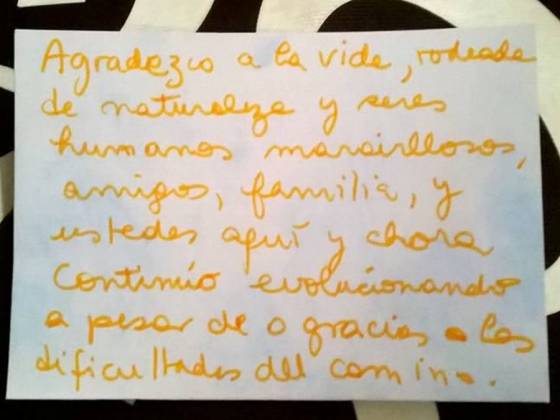 Agradezco a la vida, rodeada
de naturaleza y seres
humanos maravillosos,
amigos, familia, y
ustedes aquí y ahora
Continúo evolucionando
a pesar de o gracias a las
dificultades del camino.